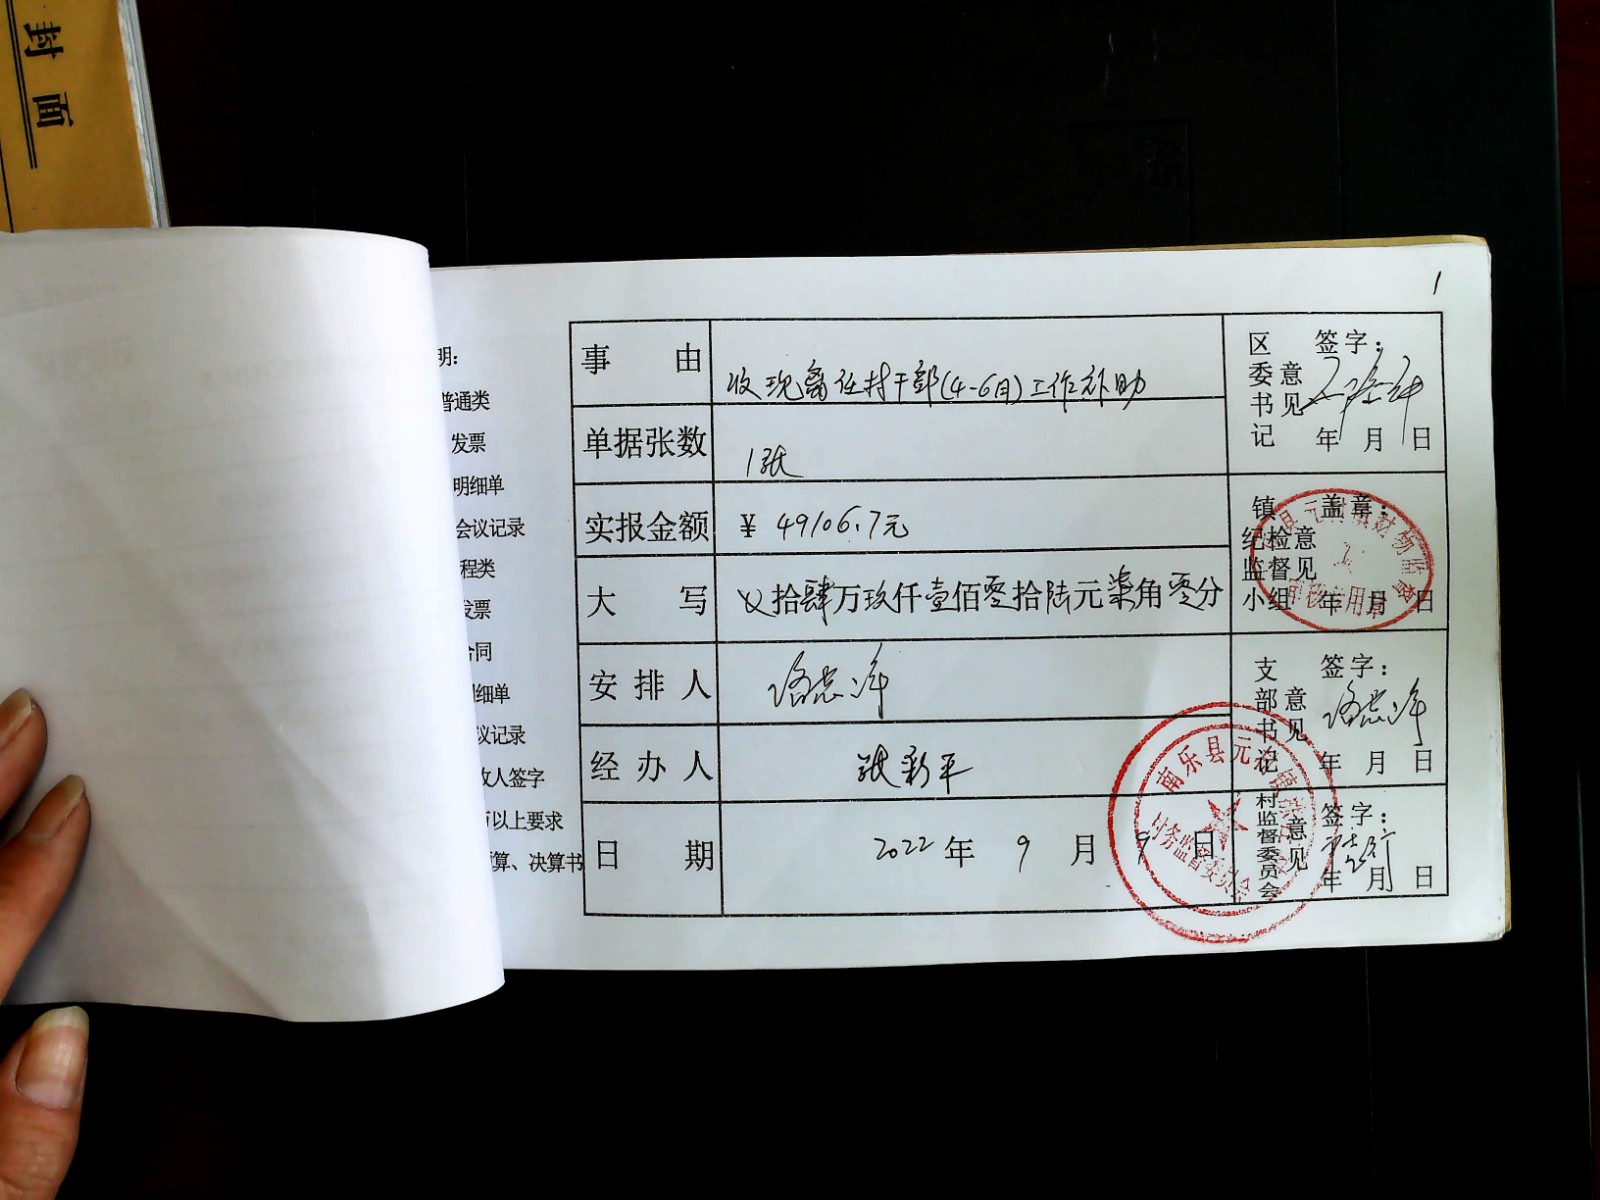 封面
1
明:
普通类
发票
明细单
会议记录
程类
发票
合同
细单
议记录
收人签字
万以上要求
算、决算书
事由
收现离任村干部(4-6月)工作补助
单据张数
1张
实报金额
¥ 49106.7元
大写
拾肆万玖仟壹佰零拾陆元柒角零分
安排人
经办人
张彩平
日期
2022年9月9日
区委书记意见
签字:
年月日
镇纪检监督小组意见
盖章:
年月日
支部书记意见
签字:
年月日
村监督委员会意见
签字:
年月日
南乐县元村镇
村务监督委员会